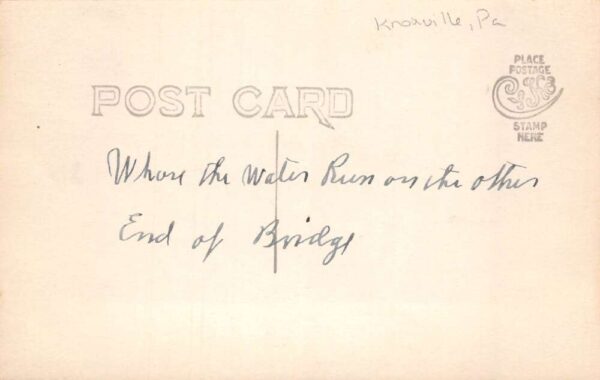 Knoxville, Pa
PLACE
POSTAGE
STAMP
HERE
POST CARD
Whare the Water Run on the other
End of Bridge